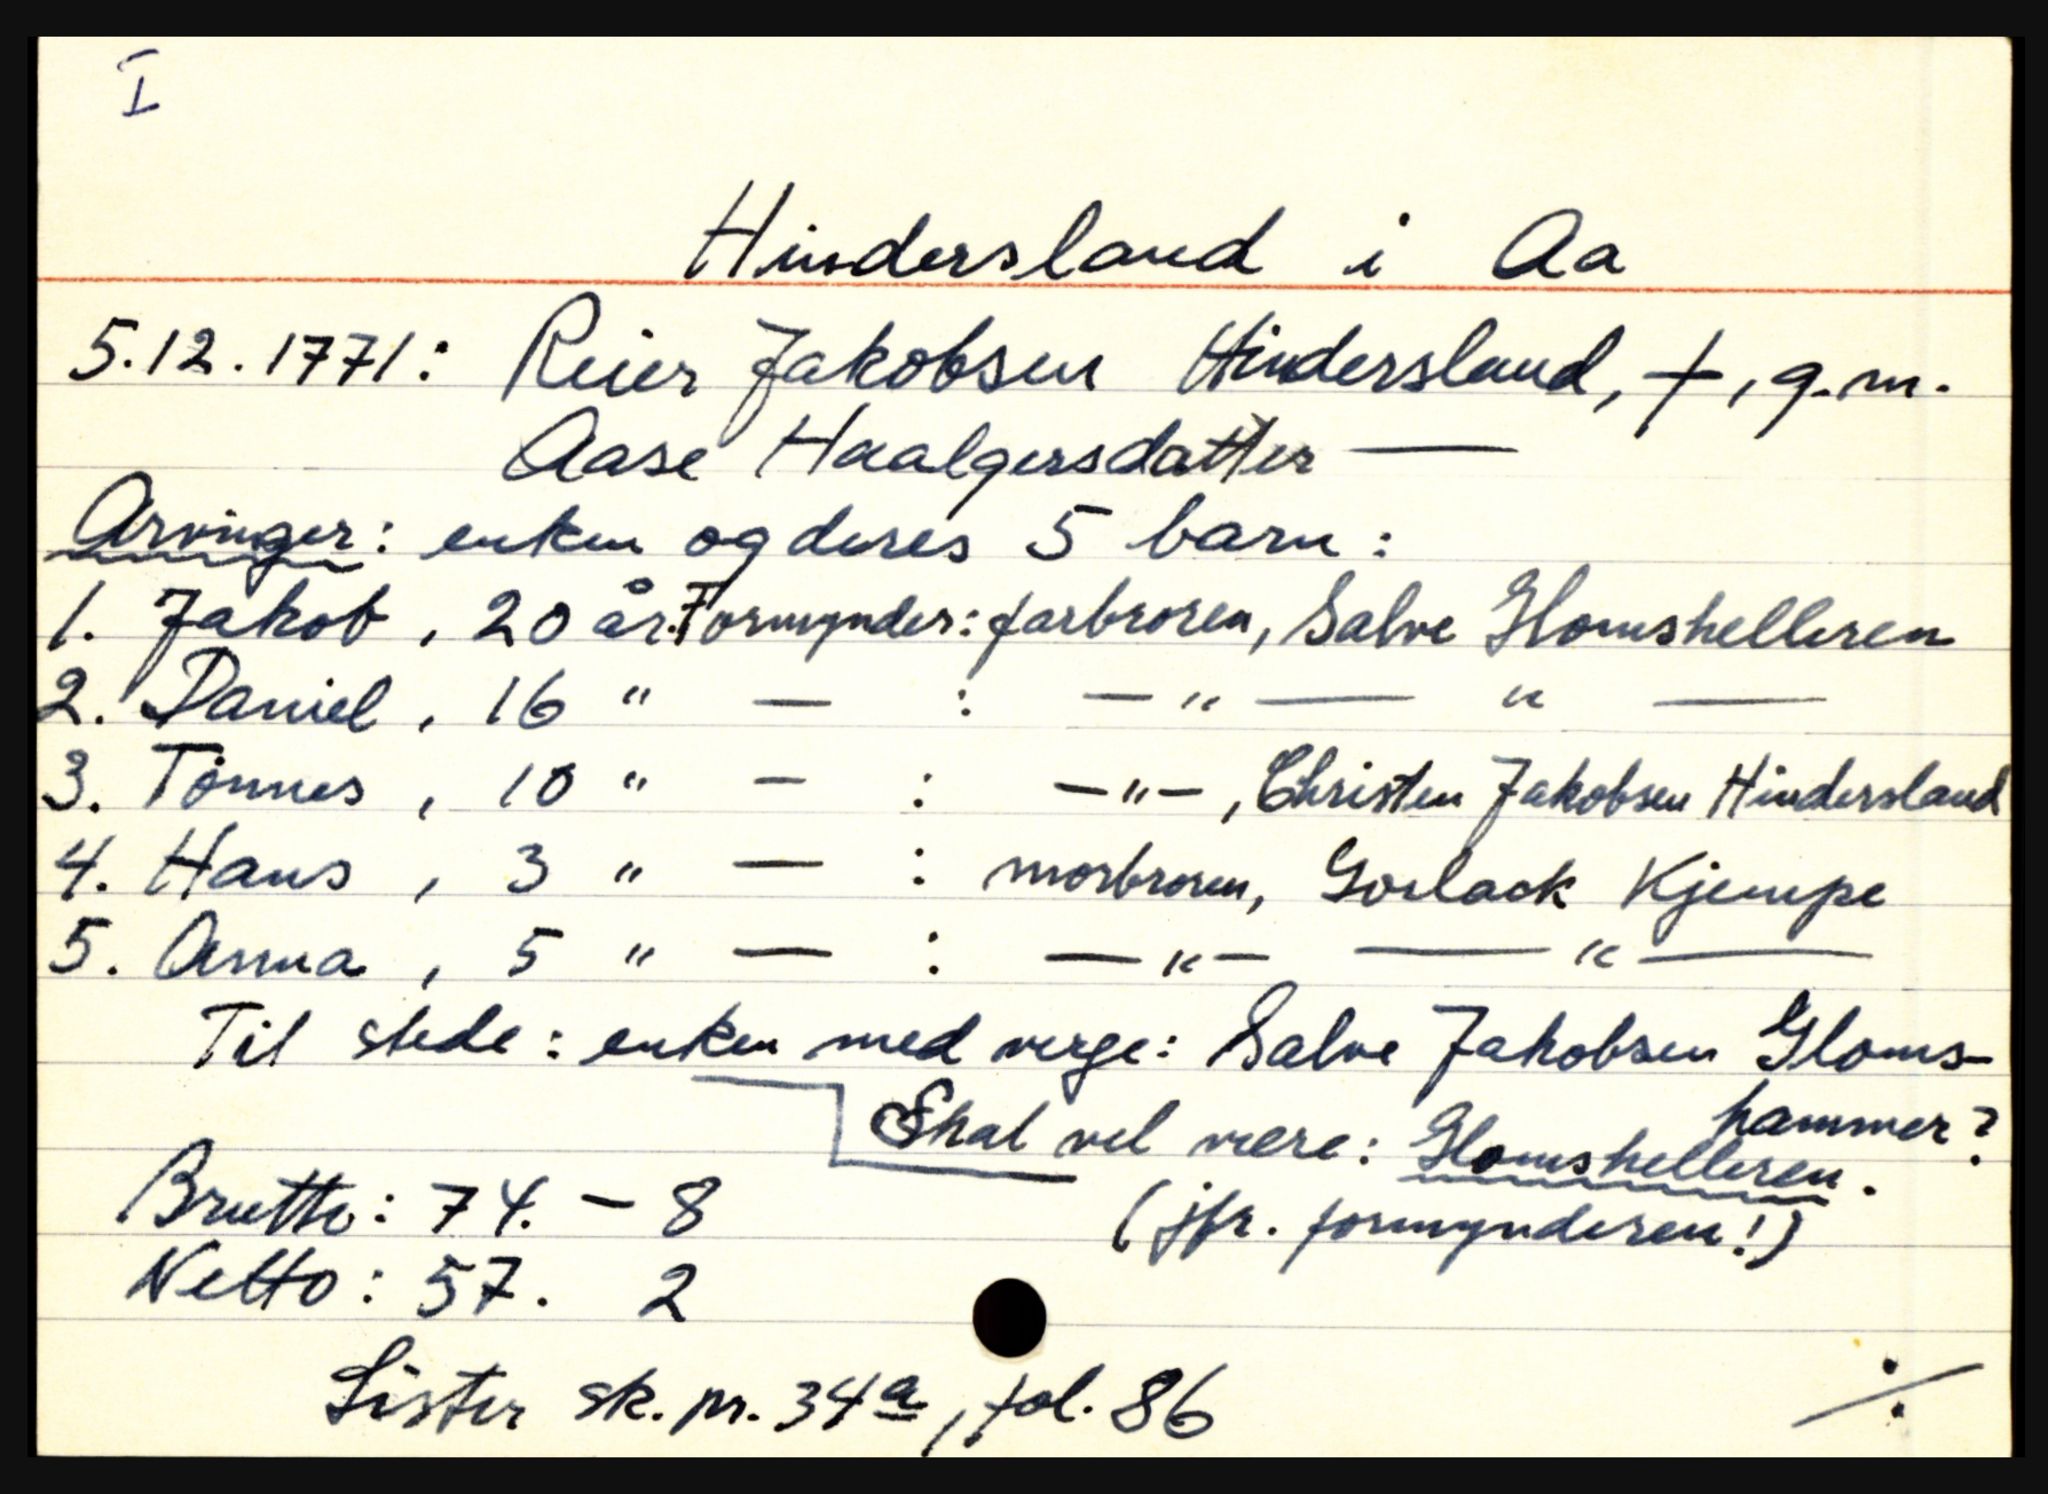 I
Hindersland i Aa
5.12.1771: Reier Jakobsen Hindersland, †, g.m.
Aase Haalgersdatter —
Arvinger: enken og deres 5 barn:
1. Jakob, 20 år. Formynder: farbroren, Salve Glomshelleren
2. Daniel, 16 " — : — " — " —
3. Tønnes, 10 " — : — " —, Christen Jakobsen Hindersland
4. Hans, 3 " — : morbroren, Gorlack Kjempe
5. Anna, 5 " — : — " — — " —
Til stede: enken med verge: Salve Jakobsen Gloms-
hammer?
Skal vel være: Glomshelleren.
Brutto: 74. - 8
(jfr. formynderen!)
Netto: 57. 2
Lister sk. pr. 34a, fol. 86
./.